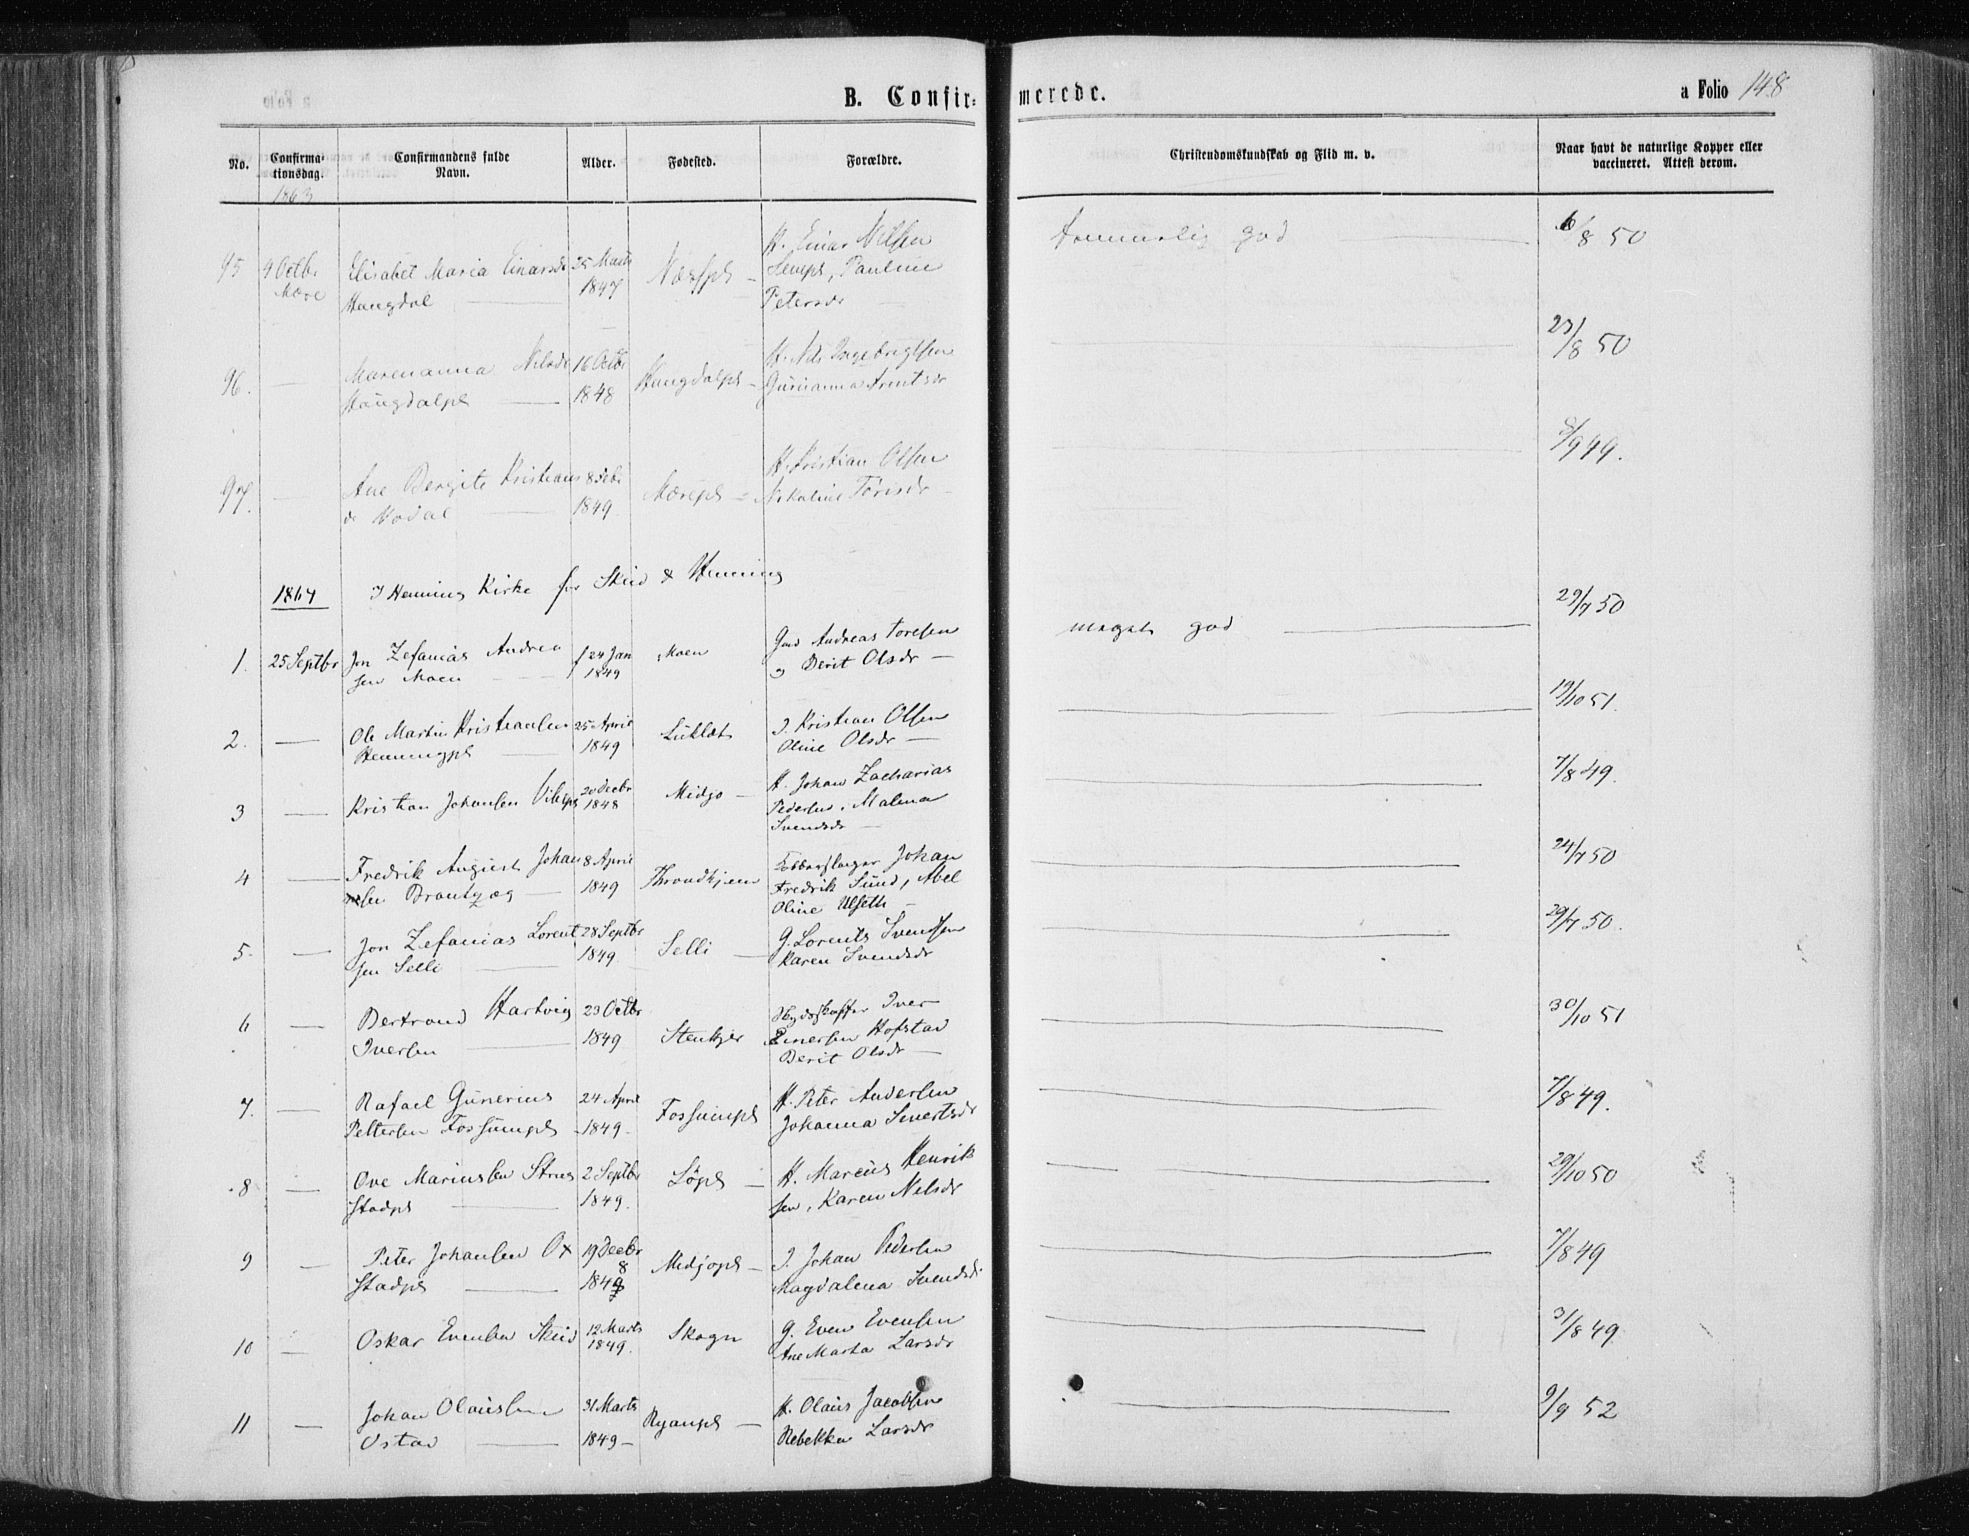 B. Confirmerede. a Folio 148
No. Confirmationsdag. Confirmandens fulde Navn. Alder. Fødested. Forældre. Christendomskundskab og Flid m. v. Naar havt de naturlige Kopper eller vaccineret. Attest derom.
1863
95 9 Octbr Elisabet Maria Einarsdr 25 Marts Næssps – H. Einar Nilsen Temmelig god 6/8 50
Mære Haugdal 1847 Pauline
Petersdr
96. — Marenanna Nilsdr 16 Octbr Haugdalpl – H. Nils Ingebrigtsen 23/8 50
Haugdalpl 1848 Gurianna Arntsdr
97. — Ane Bergite Kristians 8 Febr Mærepl – H. Kristian Olsen 8/9 49.
dr Vodal 1849. Nikoline Torisdr
1864 I Henning Kirke for Skeid & Henning
1. 25 Septbr Jon Zefanias Andrea 24 Jan Moen Gmd Andreas Toresen meget god 29/7 50
sen Moen 1849 Berit Olsdr —
2. — Ole Martin Kristiansen 25 April I. Kristian Olsen 19/10 51.
Henningpl 1849 Oline Olsdr —
3 — Kristian Johansen 20 Decbr Midjo — H. Johan Zacharias 7/8 49.
1848 Pedersen, Malena
Svendsdr —
4 — Fredrik August Johan 8 April Throndhjem Kobberslager Johan 24/7 50
sen Brandtzæg — 1849 Fredrik Sund, Abel
Oline Ulseth —
5 — Jon Zefanias Lorent 28 Septbr Selli — G. Lorents Svendsen 29/7 50.
sen Selli 1849. Karen Svendsdr
6 — Bertrand Hartvig 23 Octbr Stenkjer Iver 30/10 51
Iversen 1849 Einersen Hofstad
Berit Olsdr —
7. — Rafael Gunerius 24 April Fossumpl H. Peter Andersen 7/8 49.
Pettersen Fossumpl 1849 – Johanna Sivertsdr
8 — Ove Mariusen 2 Septbr Løpl — H. Marcus Henrik 29/10 50
Stadpl 1849. sen, Karen Nilsdr
9 — Peter Johansen Ox 19 Decbr Midjopl – I. Johan Pedersen 7/8 49
Stadpl 1848 Magdalena Svendsdr
10 — Oskar Evensen Skeid 12 Marts Skogn G. Even Evensen 31/8 49.
1849. Ane Marta Larsdr
11 — Johan Olausen 31 Marts Ryanpl — H. Olaus Jacobsen 9/9 52
Ostad 1849 – Rebekka Larsdr